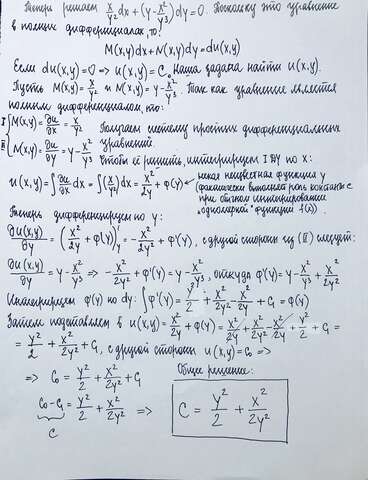 Теперь решаем x/y² dx + (y - x²/y³)dy = 0. Поскольку это уравнение
в полных дифференциалах, то:
M(x,y)dx + N(x,y)dy = du(x,y)
Если du(x,y) = 0 => u(x,y) = C₀ Наша задача найти u(x,y).
Пусть M(x,y) = x/y² и N(x,y) = y - x²/y³. Так как уравнение является
полным дифференциалом, то:
I { M(x,y) = ∂u/∂x = x/y² Получаем систему простых дифференциальных
II { M(x,y) = ∂u/∂y = y - x²/y³ уравнения. Чтобы её решить, интегрируем I ДУ по x:
u(x,y) = ∫ ∂u/∂x dx = ∫(x/y²)dx = x²/2y + φ(y)
некая неизвестная функция y
(фактически выполняет роль константы C
при обычном интегрировании
"одномерной" функции f(x)).
Теперь дифференцируем по y:
∂u(x,y)/∂y = (x²/2y + φ(y))'y = -x²/2y² + φ'(y), с другой стороны из (II) следует:
∂u(x,y)/∂y = y - x²/y³ => -x²/2y² + φ'(y) = y - x²/y³, откуда φ'(y) = y - x²/y³ + x²/2y²
Интегрируем φ(y) по dy: ∫φ'(y) = y²/2 + x²/2y² - x²/2y + C₁ = φ(y)
Затем подставляем в u(x,y) = x²/2y + φ(y) = x²/2y + x²/2y² - x²/2y + y²/2 + C₁ =
= y²/2 + x²/2y² + C₁, с другой стороны u(x,y) = C₀ =>
=> C₀ = y²/2 + x²/2y² + C₁
Общее решение:
C₀ - C₁ = y²/2 + x²/2y² => C = y²/2 + x²/2y²
C